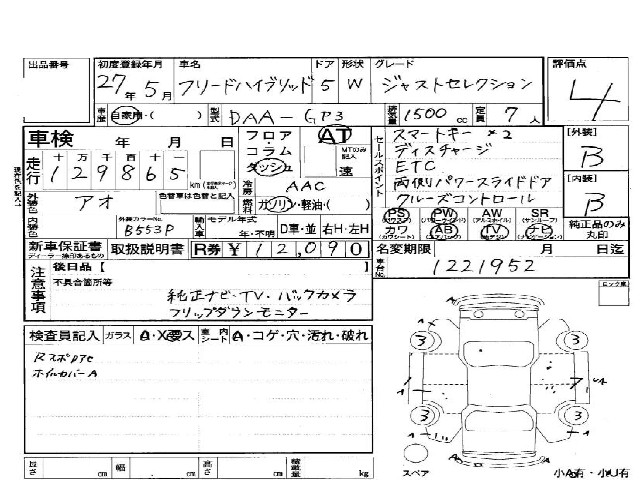 出品番号 初度登録年月 車名 ドア 形状 グレード 評価点
27年 5月 フリードハイブリッド 5 W ジャストセレクション 4
車歴 自家用・( ) 型式 DAA-GP3 排気量 1500 cc 定員 7人
車検 年 月 日
フロア・コラム・ダッシュ AT MTのみ記入 速
走行 十 万 千 百 十
129865 km
セールスポイント
スマートキー ×2
ディスチャージ
ETC
両側パワースライドドア
クルーズコントロール
[外装] B
[内装] B
外装色 アオ 色替車は色替と記入
冷房 AAC
燃料 ガソリン・軽油・( )
外装カラーNo. B553P
内装色
輸入車 モデル年式 年・不明 D車・並 右H・左H
PS PW AW SR
(パワステ) (パワーウインド) (アルミホイル) (サンルーフ)
カワ AB TV ナビ
(カワシート) (エアバッグ)
純正品のみ丸印
新車保証書 取扱説明書 R券 ¥12,090 名変期限 月 日迄
ディーラー捺印あるもの
車台No. 1221952
注意事項
後日品【
不具合箇所等
純正ナビ・TV・バックカメラ
フリップダウンモニター
検査員記入 ガラス A・X・要ス 車内シート A・コゲ・穴・汚れ・破れ
ホイルカバーA
3 3
3 3
A A
スペア 小A有・小U有
長さ cm 幅 cm 高さ cm 積載量 kg